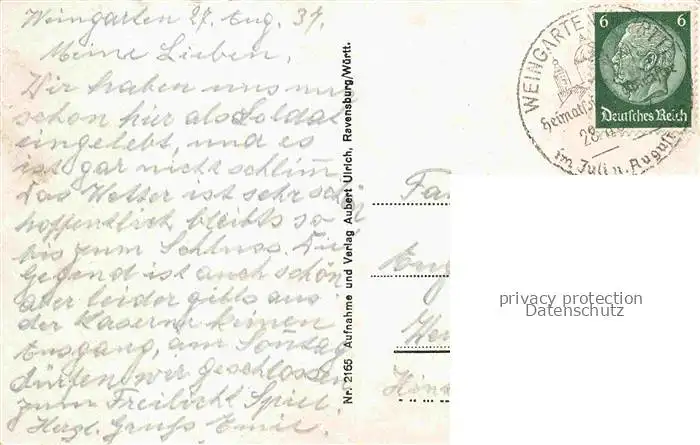 Weingarten 27. Aug. 37.
Meine Lieben.
Wir haben uns nun
schon hier als Soldat
eingelebt, und es
ist gar nicht schlimm.
Das Wetter ist sehr schön
hoffentlich bleibts so
bis zum Schluss. Die
Gegend ist auch schön
aber leider gibts aus
der Kaserne keinen
Ausgang am Sontag
dürfen wir geschlossen
zum Freilicht Spiel.
Herzl. Gruß Emil.
Nr. 2165 Aufnahme und Verlag Aubert Ulrich, Ravensburg/Württ.
WEINGARTEN
Heimat
28.
im Juli u. August
6 6
Deutsches Reich
Fa
privacy protection
Datenschutz